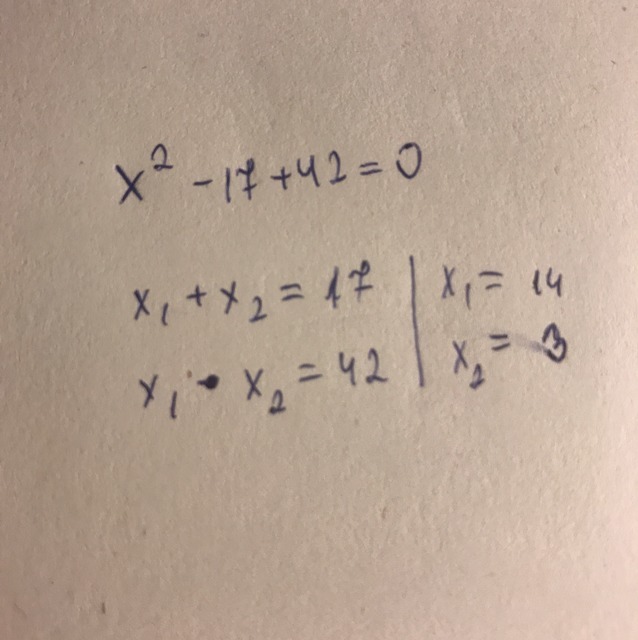 x² -17+42=0
x₁ + x₂ = 17 | x₁ = 14
x₁ • x₂ = 42 | x₂ = 3